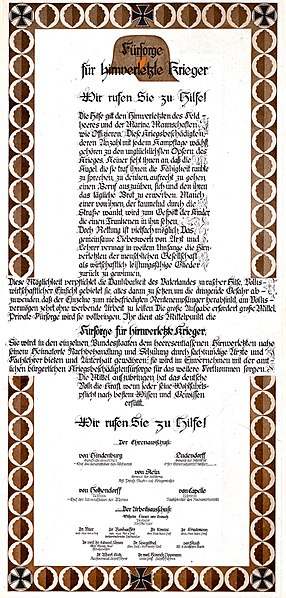 Fürsorge
für hirnverletzte Krieger
Wir rufen Sie zu Hilfe!
Die Hilfe gilt den Hirnverletzten des Feld-
heeres und der Marine, Mannschaften
wie Offizieren. Diese Kriegsbeschädigten,
deren Anzahl mit jedem Kampftage wächst,
gehören zu den unglücklichsten Opfern des
Krieges. Keiner sieht ihnen an, daß die
Kugel, die sie traf, ihnen die Fähigkeit raubte
zu sprechen, zu denken, aufrecht zu gehen,
einen Beruf auszuüben, sich und den ihren
das tägliche Brot zu erwerben. Manch
einer von ihnen, der taumelnd durch die
Straße wankt, wird zum Gespött der Kinder,
die einen Trunkenen in ihm sehen.
Doch Rettung ist vielfach möglich. Das
gemeinsame Liebeswerk von Arzt und
Lehrer vermag in weitem Umfange die Hirn-
verletzten der menschlichen Gesellschaft
als wirtschaftlich leistungsfähige Glieder
zurück zu gewinnen.
Diese Möglichkeit verpflichtet die Dankbarkeit des Vaterlandes zu rascher Hilfe. Volks-
wirtschaftlicher Einsicht gebietet sie, alles daran zu setzen, um die dringende Gefahr ab-
zuwenden, daß der Einzelne zum unbefriedigten Rentenempfänger herabsinkt, am Volks-
vermögen zehrt ohne werbende Arbeit zu leisten. Die große Aufgabe erfordert große Mittel.
Private Fürsorge wird sie vollbringen. Ihr dient als Mittelpunkt die
Fürsorge für hirnverletzte Krieger.
Sie wird in den einzelnen Bundesstaaten dem heerentlassenen Hirnverletzten nahe
seinem Heimatorte Nachbehandlung und Schulung durch sachkundige Ärzte und
Fachlehrer bieten und Unterhalt gewähren; sie wird im Einvernehmen mit der amt-
lichen bürgerlichen Kriegsbeschädigtenfürsorge für das weitere Fortkommen sorgen.
Die Mittel aufzubringen hat das deutsche
Volk die Kraft, wenn jeder seine Wohlfahrts-
pflicht nach bestem Wissen und Gewissen
erfüllt.
Wir rufen Sie zu Hilfe!
Der Ehrenausschuß:
von Hindenburg
Ludendorff
von Stein
von Holtzendorff
von Capelle
Der Arbeitsausschuß: